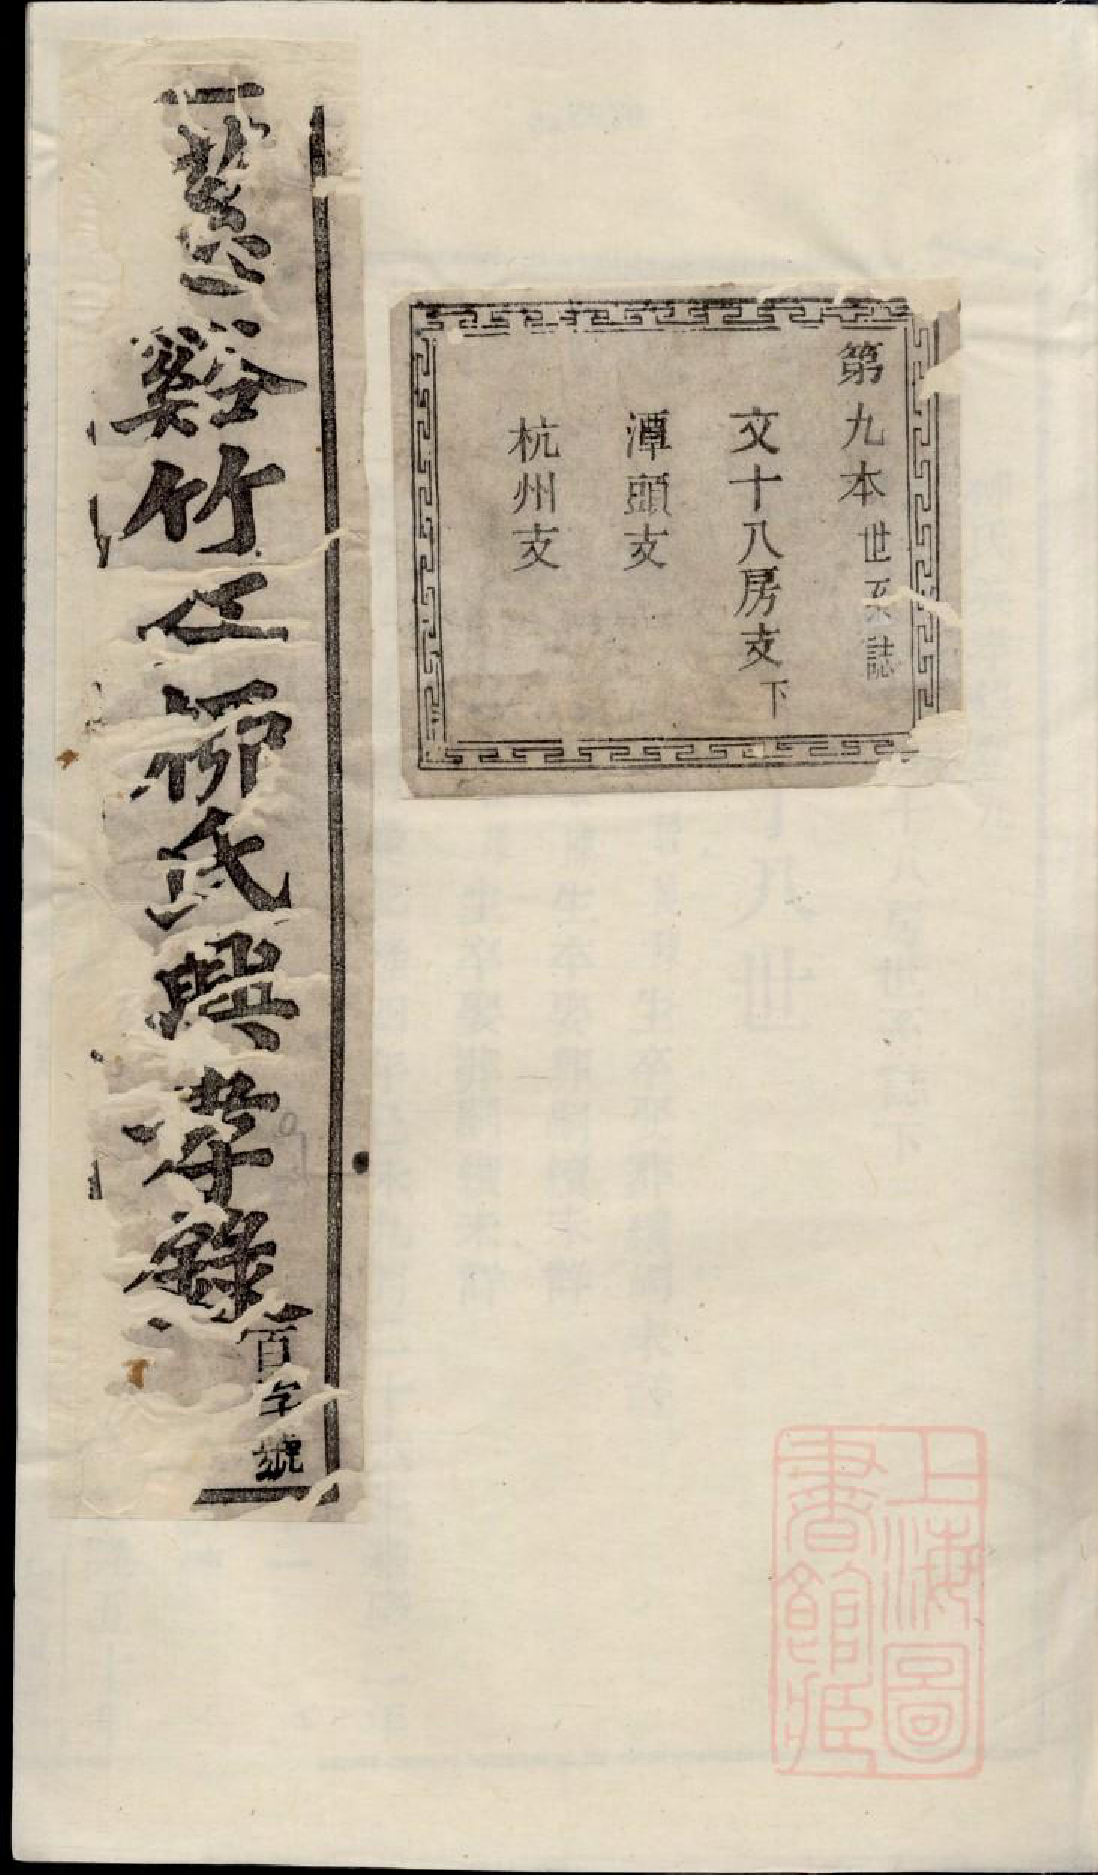 慈谿竹江柳氏興孝錄 百字號
第九本世系誌
文十八房支下
潭頭支
杭州支
上海圖書館藏